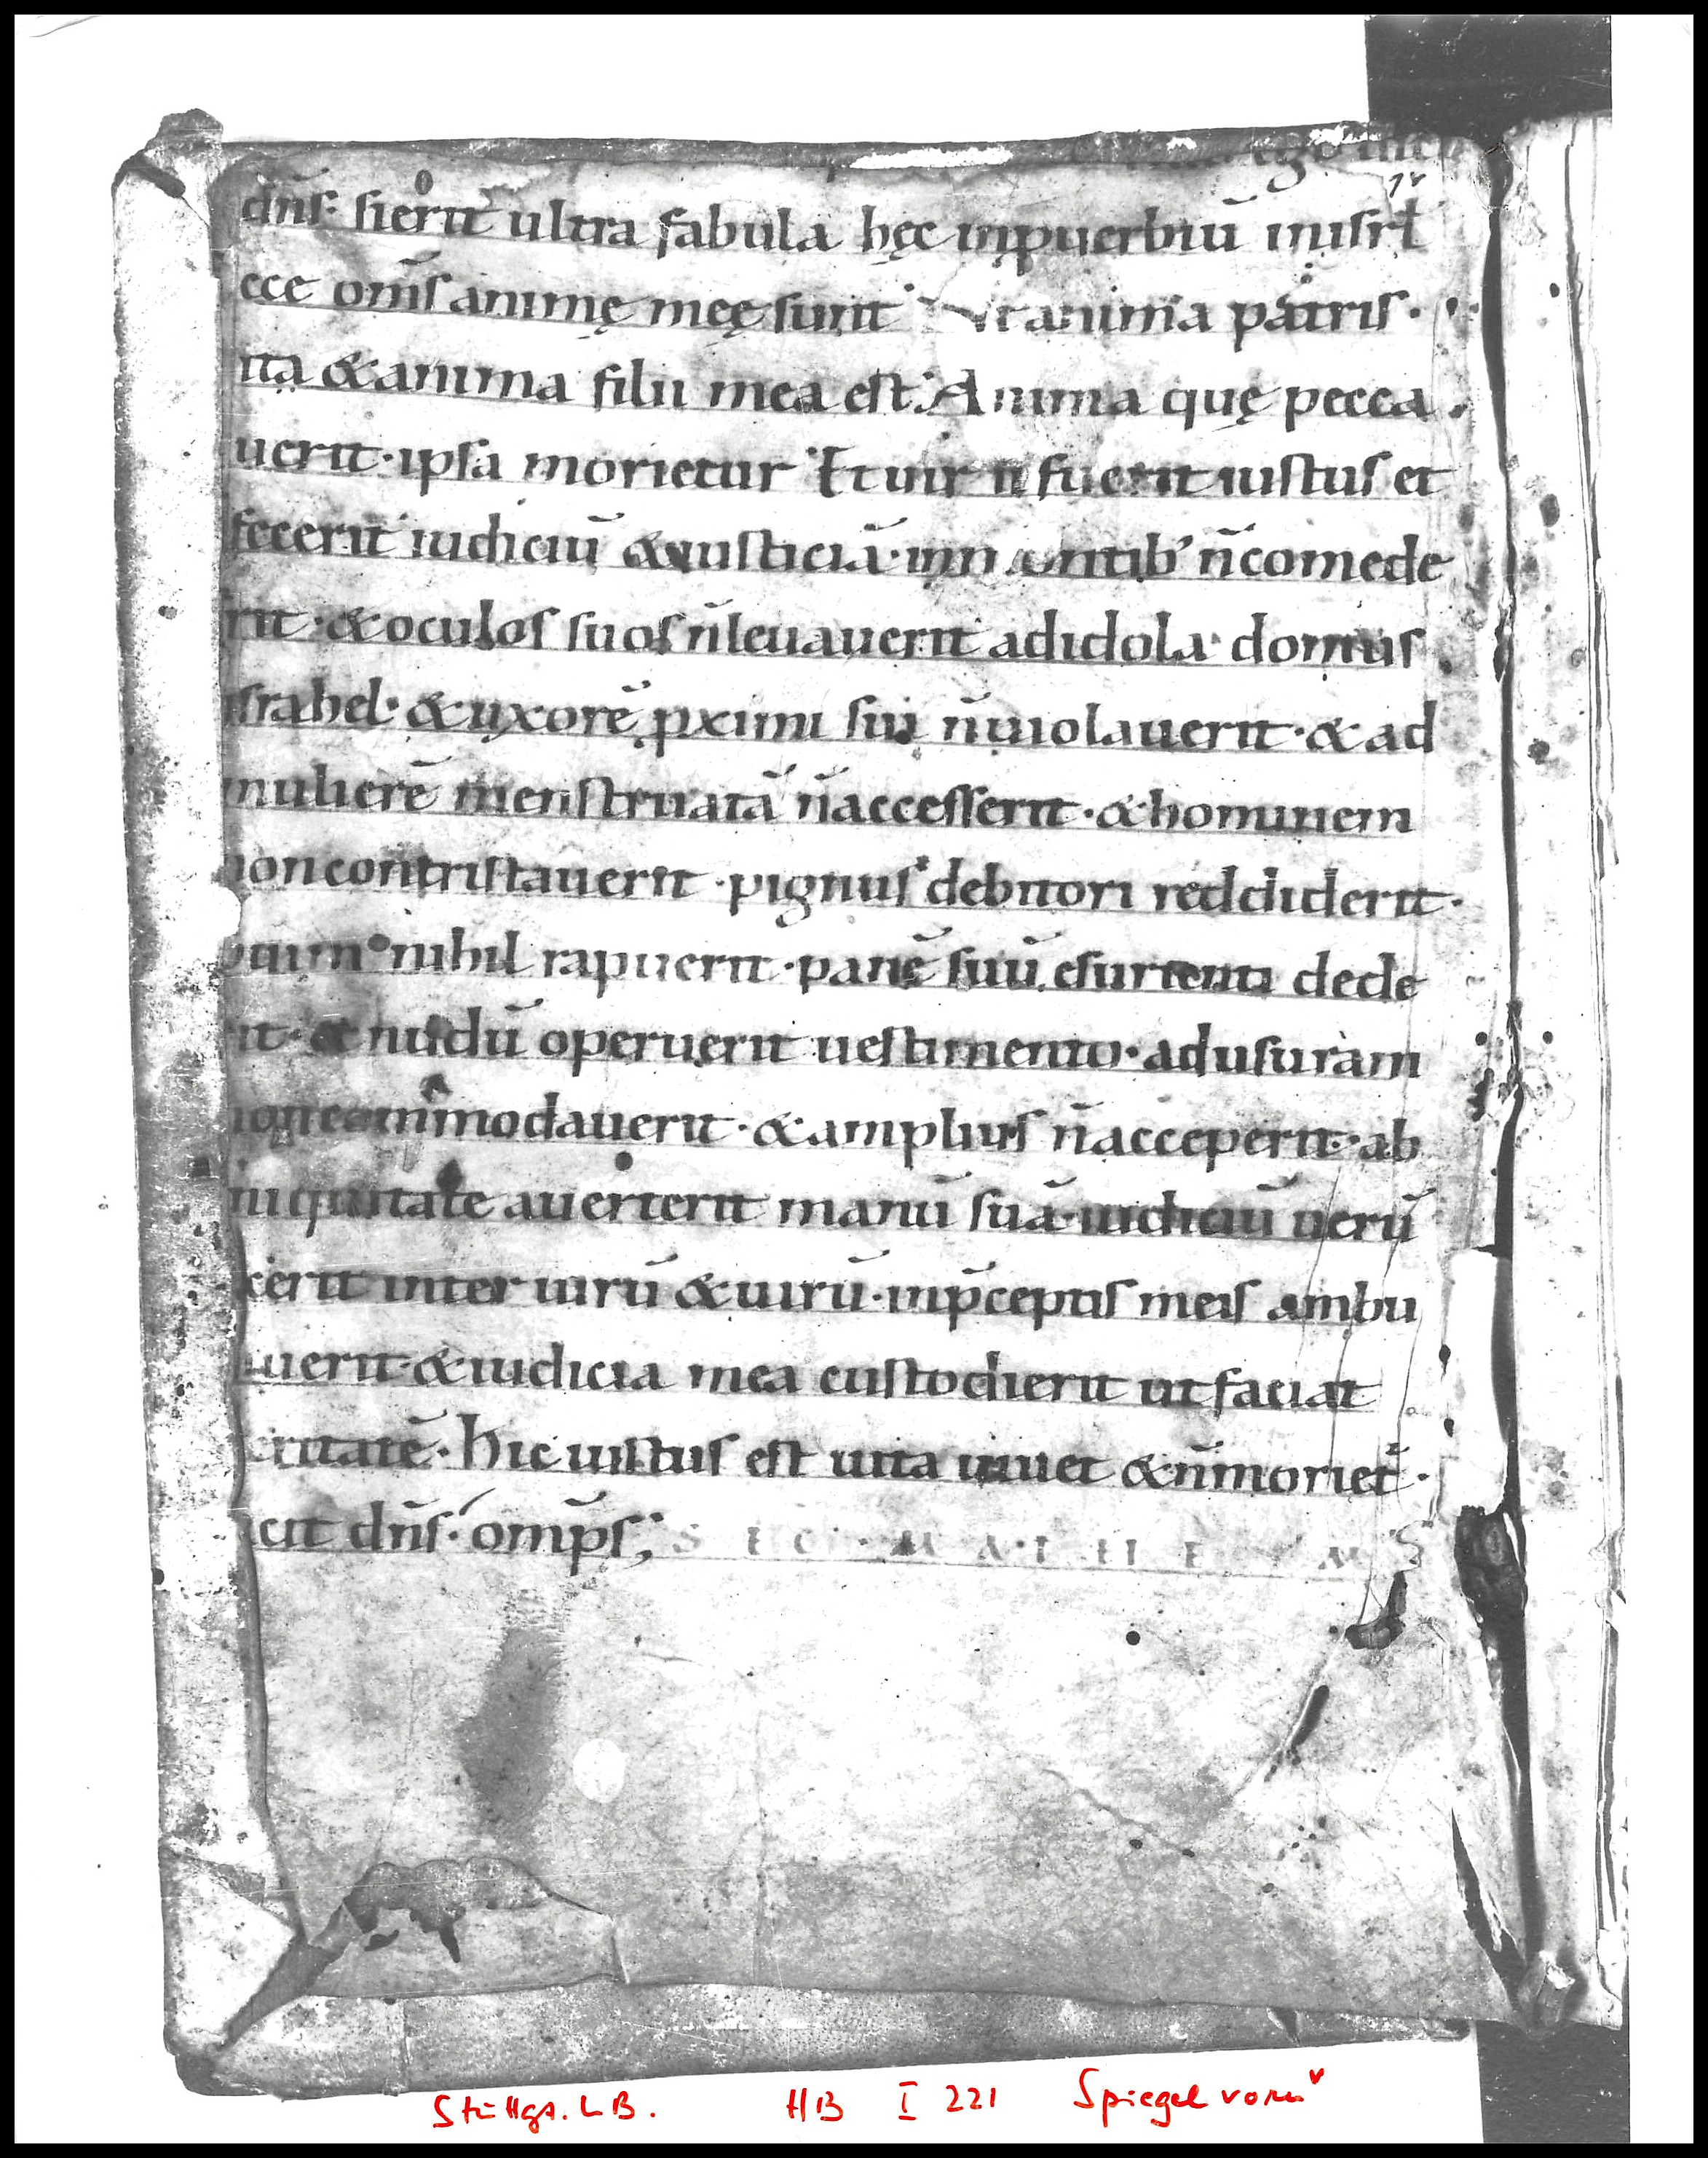 ego
1r
dn̄s· si erit ultra fabula hęc inpuerbiū inisrl̄
ecce om̄s animę meę sunt Vt anima patris·
ita & anima filii mea est· Anima quę pecca
uerit· ipsa morietur Et uir si fuerit iustus et
fecerit iudiciū & iusticiā· in montib' n̄ comede
rit· & oculos suos n̄ leuauerit ad idola domus
israhel· & uxorē pximi sui n̄ uiolauerit· & ad
mulierē menstruatā n̄ accesserit· & hominem
non contristauerit· pignus debitori reddiderit·
nihil rapuerit· panē suū esurienti dede
rit· & nudū operuerit uestimento· ad usuram
non commodauerit· & amplius n̄ acceperit· ab
iniquitate auerterit manū suā· iudiciū uerū
cerit inter uirū & uirū· in p̄ceptis meis ambu
uerit· & iudicia mea custodierit ut faciat
eritatē· hic iustus est uita uiuet & n̄ moriet̄·
icit dn̄s· omp̄s;
Stuttgt. LB. HB I 221 Spiegel vorn